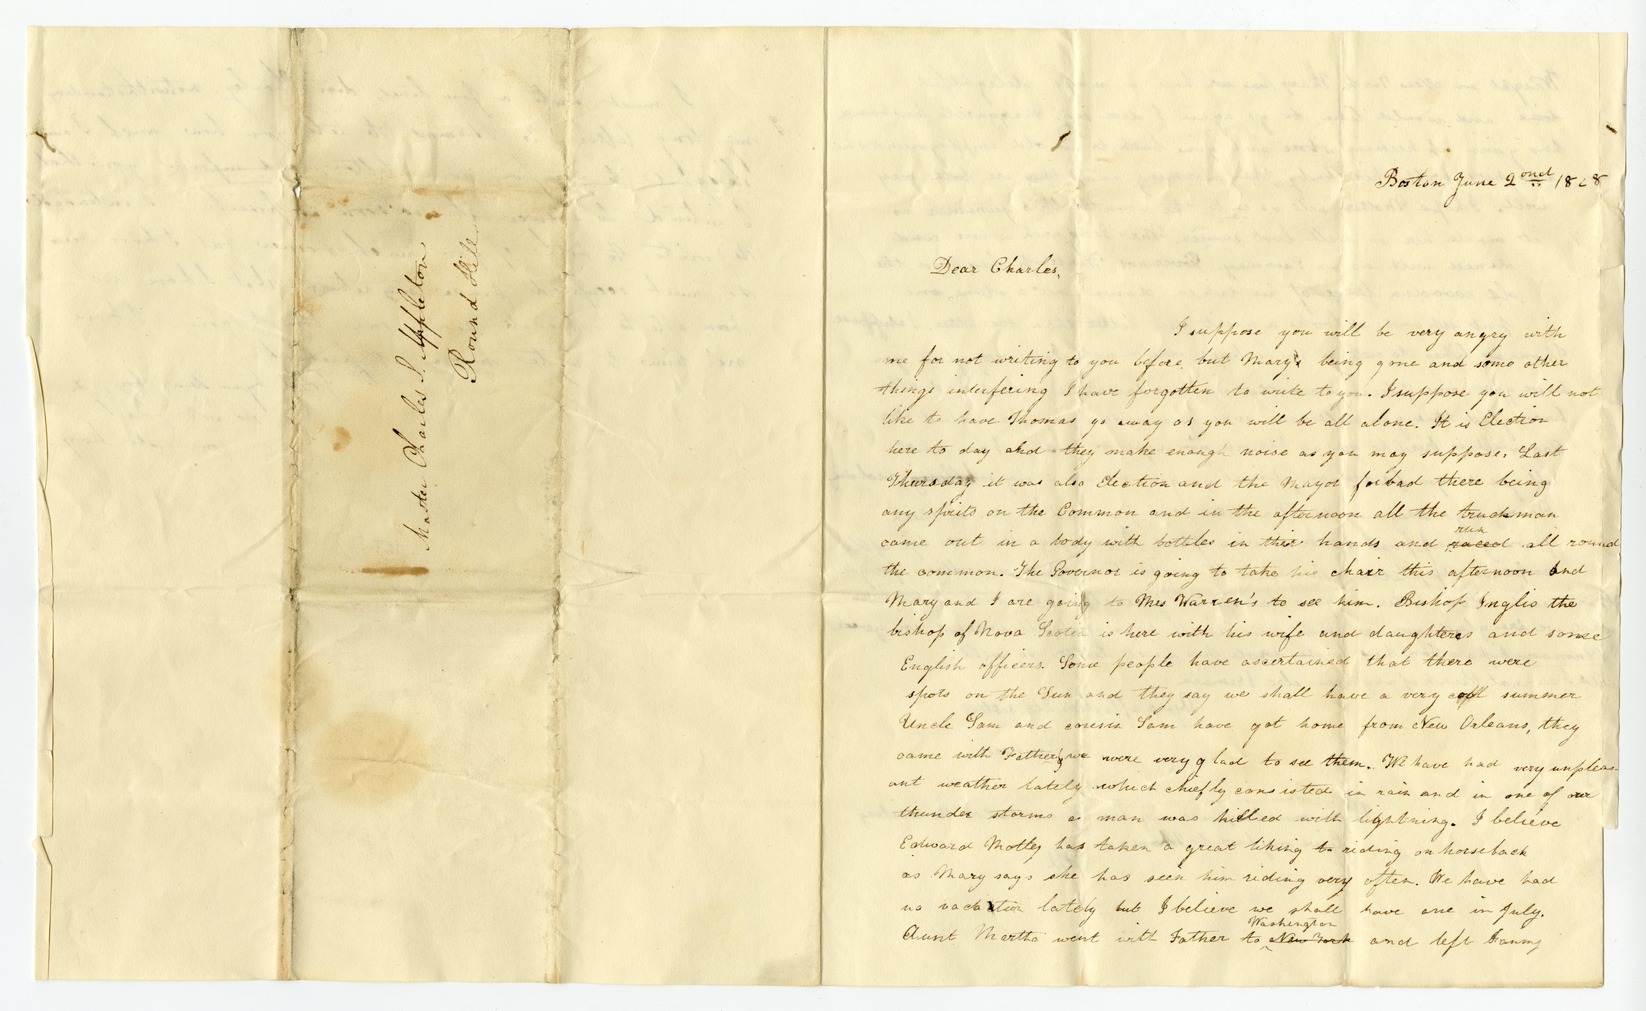 Master Charles S. Appleton
Round Hill
Boston June 2ond 1828
Dear Charles,
I suppose you will be very angry with
me for not writing to you before but Mary's being gone and some other
things interfering I have forgotten to write to you. I suppose you will not
like to have Thomas go away as you will be all alone. It is Election
here to day and they make enough noise as you may suppose. Last
Thursday it was also Election and the Mayor forbad there being
any spirits on the Common and in the afternoon all the truckman
came out in a body with bottles in their hands and raced run all round
the common. The Governor is going to take his chair this afternoon and
Mary and I are going to Mrs Warren's to see him. Bishop Inglis the
bishop of Nova Scotia is here with his wife and daughters and some
English officers. Some people have ascertained that there were
spots on the Sun and they say we shall have a very summer
Uncle Sam and cousin Sam have got home from New Orleans, they
came with Father, we were very glad to see them. We have had very unpleas-
ant weather lately which chiefly consisted in rain and in one of our
thunder storms a man was killed with lightning. I believe
Edward Motley has taken a great liking to riding on horseback
as Mary says she has seen him riding very often. We have had
no vacation lately but I believe we shall have one in July.
Aunt Martha went with Father to New York Washington and left